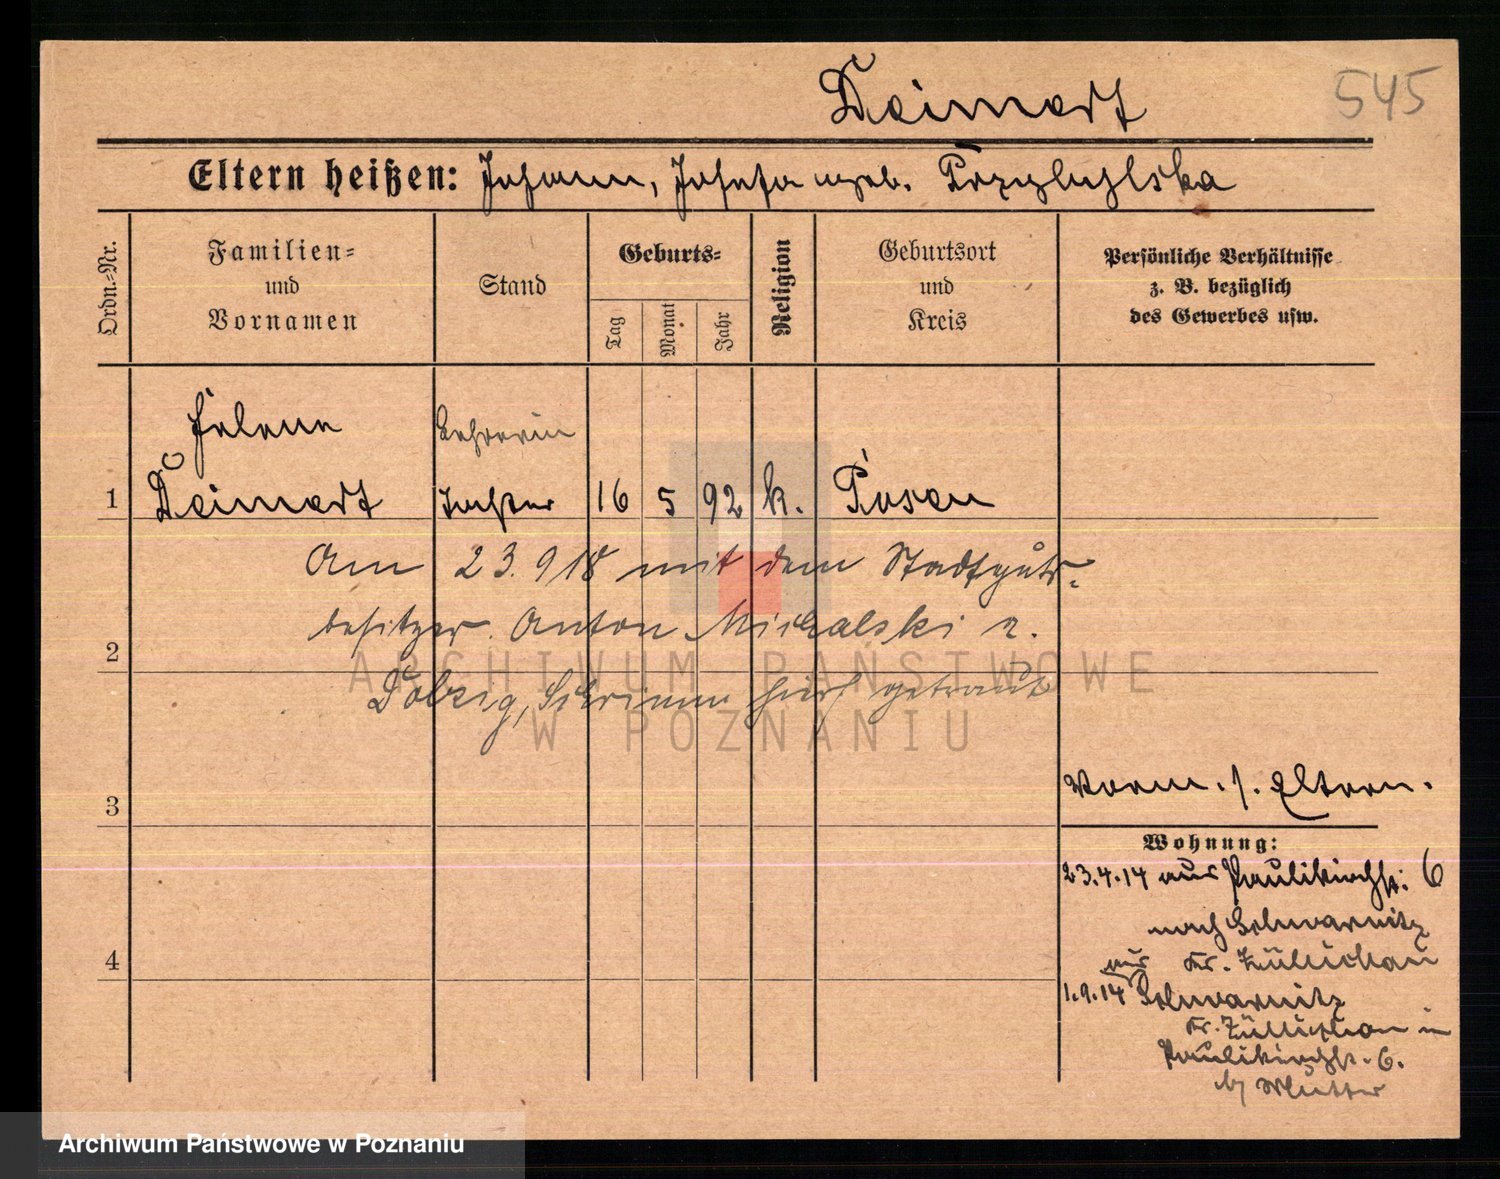 Deimert
545
Eltern heißen: Johann, Josefa geb. Przybylska
Ordn.-Nr.
Familien-
und
Vornamen
Stand
Geburts-
Tag
Monat
Jahr
Religion
Geburtsort
und
Kreis
Persönliche Verhältnisse
z. B. bezüglich
des Gewerbes usw.
Helene
Lehrerin
1
Deimert
Tochter
16
5
92
k.
Posen
Am 23.9 18 mit dem Stadtguts-
besitzer Anton Michalski
2
Dolzig, Schrimm hier getraut
ARCHIWUM PAŃSTWOWE
W POZNANIU
3
Vorm. s. Eltern.
Wohnung:
23.4.14 aus Paulikirchstr. 6
nach
4
Kr. Züllichau
aus
1.9.14
Kr. Züllichau in
Paulikirchstr. 6.
bei Mutter
Archiwum Państwowe w Poznaniu